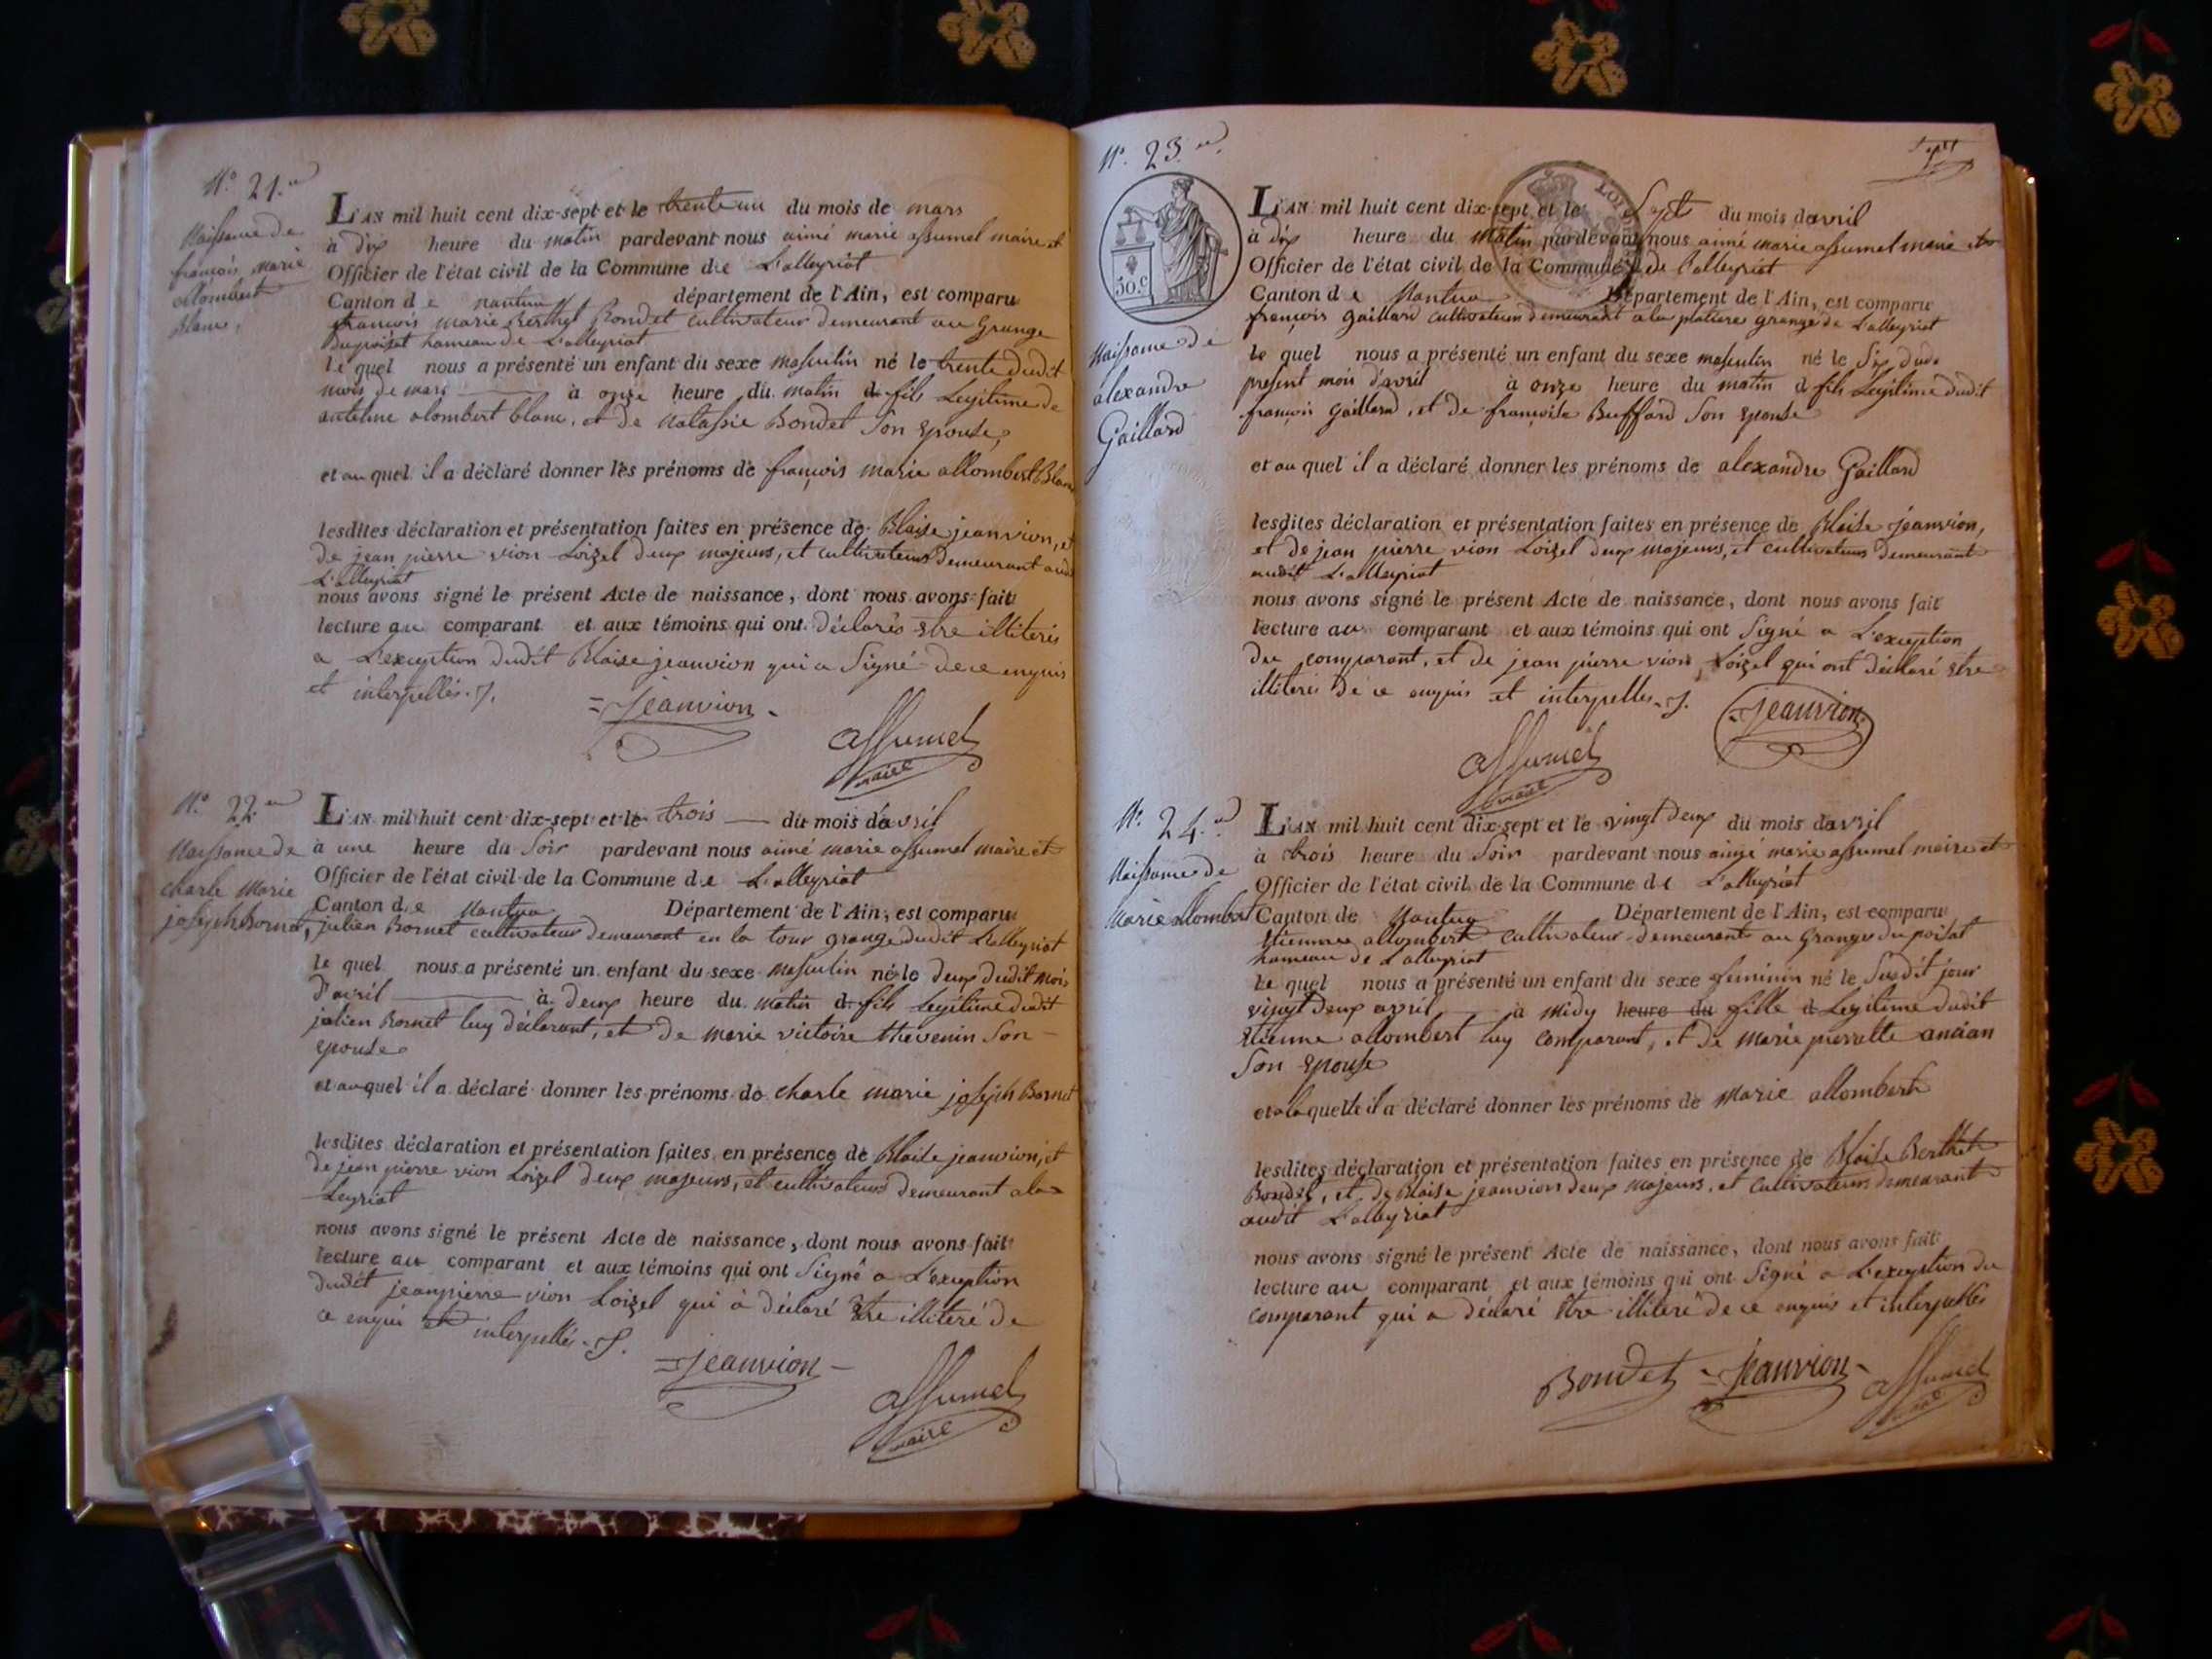 N.° 21.en
Naissance de
françois marie
allombert
Blanc.
L'AN mil huit cent dix-sept et le trente un du mois de mars
à dix heure du matin pardevant nous aimé marie assumel maire et
Officier de l'état civil de la Commune de L'alleyriat
Canton de nantua département de l'Ain, est comparu
françois marie Berthet Bondet cultivateur demeurant au Grange
Dupoizat hameau de L'alleyriat
le quel nous a présenté un enfant du sexe masculin né le trente dudit
mois de mars à onze heure du matin d fils Legitime de
antelme alombert blanc, et de Natassie Bondet Son epouse,
et au quel il a déclaré donner les prénoms de françois marie allombert Blanc
lesdites déclaration et présentation faites en présence de Blaise jeanvion, et
de jean pierre vion Loizel deux majeurs, et cultivateurs demeurant audit
L'alleyriat
nous avons signé le présent Acte de naissance, dont nous avons fait
lecture au comparant et aux témoins qui ont déclarés etre illiterés
a L'exception dudit Blaise jeanvion qui a Signé de ce enquis
et interpellés.
Jeanvion
assumel
maire
N.° 22.en
Naissance de
charle Marie
joseph Bornet,
L'AN mil huit cent dix-sept et le trois du mois d'avril
à une heure du Soir pardevant nous aimé marie assumel maire et
Officier de l'état civil de la Commune de L'alleyriat
Canton de Nantua Département de l'Ain, est comparu
julien Bornet cultivateur demeurant en la tour grange dudit L'alleyriat
le quel nous a présenté un enfant du sexe masculin né le deux dudit mois
d'avril à deux heure du matin d fils Legitime dudit
julien Bornet luy déclarant, et de marie victoire thevenin Son
epouse
et auquel il a déclaré donner les prénoms de charle marie joseph Bornet
lesdites déclaration et présentation faites en présence de Blaise jeanvion, et
de jean pierre vion Loizel deux majeurs, et cultivateurs demeurant ala
Leyriat
nous avons signé le présent Acte de naissance, dont nous avons fait
lecture au comparant et aux témoins qui ont Signé a L'exception
dudit jeanpierre vion Loizel qui à déclaré etre illiteré de
ce enquis et interpellés.
Jeanvion
assumel
maire
N.° 23.en
Sept
30.C
Naissance de
alexandre
Gaillard
L'AN mil huit cent dix-sept et le Sept du mois davril
à dix heure du matin pardevant nous aimé marie assumel maire et
Officier de l'état civil de la Commune de l'alleyriat
Canton de Nantua Département de l'Ain, est comparu
françois gaillard cultivateur demeurant a la platiere grange de L'alleyriat
le quel nous a présenté un enfant du sexe masculin né le Six dudit
present mois d'avril à onze heure du matin d fils Legitime dudit
françois gaillard, et de françoise Buffard Son epouse
et au quel il a déclaré donner les prénoms de alexandre Gaillard
lesdites déclaration et présentation faites en présence de Blaise jeanvion,
et de jean pierre vion Loizel deux majeurs, et cultivateurs demeurant
audit L'alleyriat
nous avons signé le présent Acte de naissance, dont nous avons fait
lecture au comparant et aux témoins qui ont Signé a L'exception
du comparant, et de jean pierre vion, Loizel qui ont déclaré etre
illiterés de ce enquis et interpellés.
Jeanvion
assumel
maire
N.° 24.en
Naissance de
Marie allombert
L'AN mil huit cent dix-sept et le vingt deux du mois davril
à trois heure du Soir pardevant nous aimé marie assumel maire et
Officier de l'état civil de la Commune de L'alleyriat
Canton de Nantua Département de l'Ain, est comparu
Etienne allombert cultivateur demeurant au Granges du poisat
hameau de L'alleyriat
le quel nous a présenté un enfant du sexe feminin né le Susdit jour
vingt deux avril à Midy heure du fille d Legitime dudit
Etienne allombert luy comparant, et de marie pierrette ancian
Son epouse
et a la quelle il a déclaré donner les prénoms de Marie allombert
lesdites déclaration et présentation faites en présence de Blaise Berthet
Bondet, et de Blaise jeanvion deux majeurs, et cultivateurs demeurant
audit L'alleyriat
nous avons signé le présent Acte de naissance, dont nous avons fait
lecture au comparant et aux témoins qui ont Signé a L'exception du
comparant qui a déclaré être illiteré de ce enquis et interpellés
Bondet Jeanvion assumel
maire